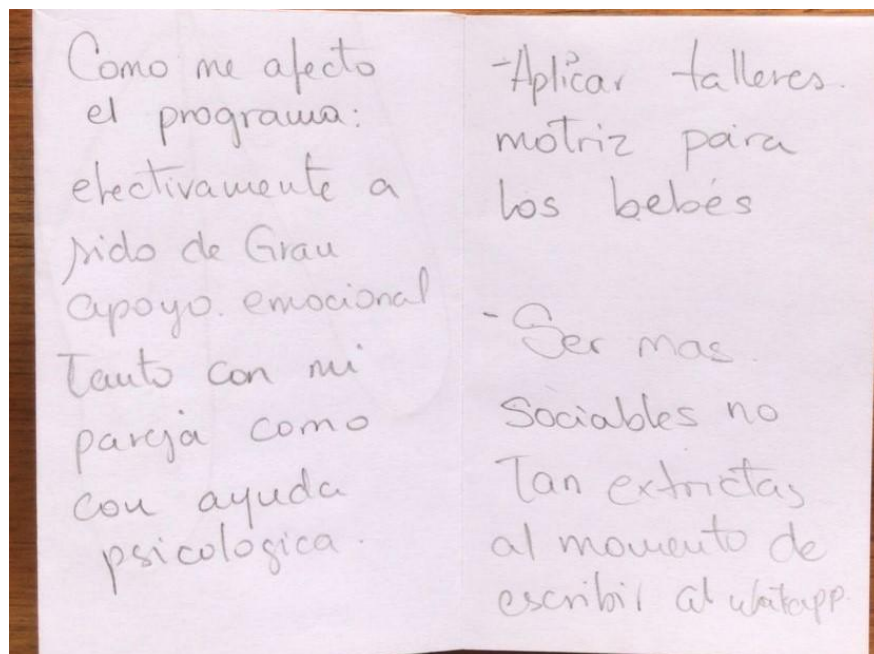 Como me afecto
el programa:
efectivamente a
sido de Gran
apoyo. emocional
Tanto con mi
pareja como
con ayuda
psicologica.
-Aplicar talleres.
motriz para
los bebés
- Ser mas.
Sociables no
Tan extrictas
al momento de
escribir al whatsapp.